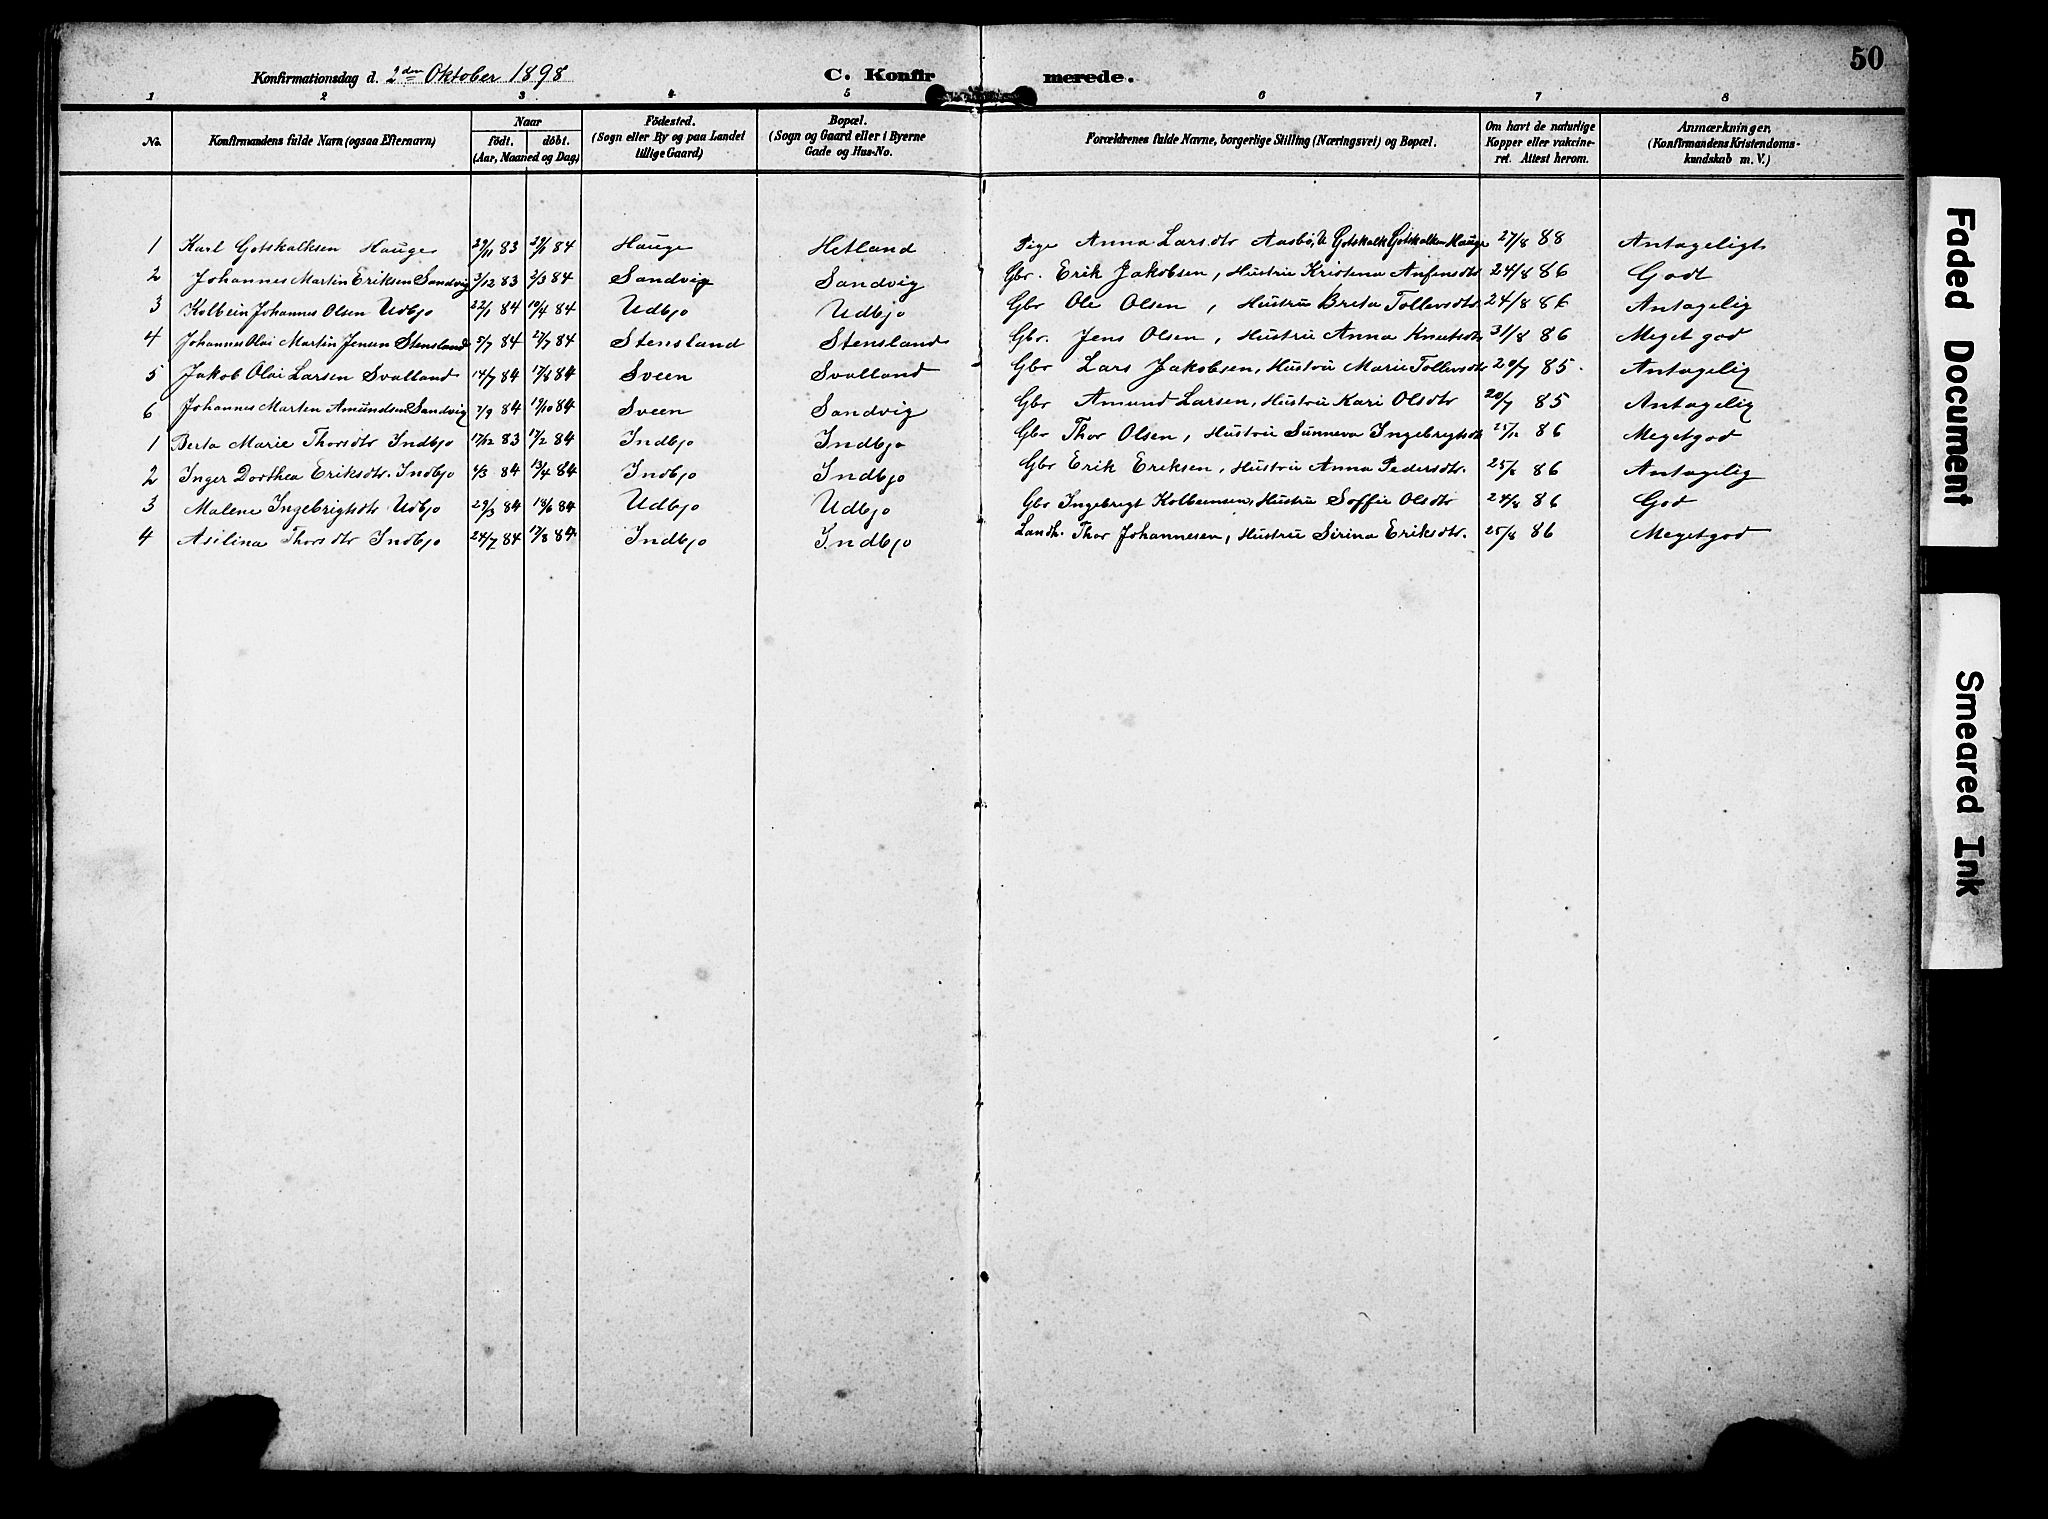 50
Konfirmationsdag d. 2den Oktober 1898 C. Konfirmerede.
1 2 3 4 5 6 7 8
No. Konfirmandens fulde Navn (ogsaa Efternavn) Naar födt. döbt. (Aar, Maaned og Dag) Födested. (Sogn eller By og paa Landet tillige Gaard) Bopæl. (Sogn og Gaard eller i Byerne Gade og Hus-No. Forældrenes fulde Navne, borgerlige Stilling (Næringsvei) og Bopæl. Om havt de naturlige Kopper eller vakcineret. Attest herom. Anmærkninger. (Konfirmandens Kristendomskundskab m. V.)
1 Karl Gotskalksen Hauge 29/11 83 29/1 84 Hauge Hetland Pige Anna Larsdtr Aasbö, & Gotskalk Gotskalksen Hauge 27/8 88 Antageligt
2 Johannes Martin Eriksen Sandvig 3/12 83 2/3 84 Sandvig Sandvig Gbr. Erik Jakobsen, Hustru Kristena Anfensdtr 24/8 86 Godt
3 Kolbein Johannes Olsen Udbjo 22/1 84 10/4 84 Udbjo Udbjo Gbr Ole Olsen, Hustru Breta Tollevsdtr 24/8 86 Antagelig
4 Johannes Olai Martin Jensen Stensland 5/7 84 27/7 84 Stensland Stensland Gbr. Jens Olsen, Hustru Anna Knutsdtr 31/8 86 Meget god
5 Jakob Olai Larsen Svalland 14/7 84 17/8 84 Sveen Svalland Gbr Lars Jakobsen, Hustru Marie Tollevsdtr 20/7 85. Antagelig
6 Johannes Martin Amundsen Sandvig 7/9 84 19/10 84 Sveen Sandvig Gbr Amund Larsen, Hustru Kari Olsdtr 20/7 85 Antagelig
1 Berta Marie Thorsdtr Indbjo 17/12 83 17/2 84 Indbjo Indbjo Gbr Thor Olsen, Hustru Sunneva Ingebregtsdtr 86 Megetgod
2 Inger Dorthea Eriksdtr. Indbjo 4/3 84 13/4 84 Indbjo Indbjo Gbr Erik Eriksen, Hustru Anna Pedersdtr. 25/8 86 Antagelig
3 Malene Ingebrigtsdtr Udbjo 29/5 84 18/6 84 Udbjo Udbjo Gbr Ingebregt Kolbeinsen, Hustru Soffie Olsdtr 24/8 86 God
4 Asilina Thorsdtr Indbjo 24/7 84 17/8 84 Indbjo Indbjo Landh. Thor Johannesen, Hustru Sirina Eriksdtr. 25/8 86 Megetgod
Faded Document
Smeared Ink